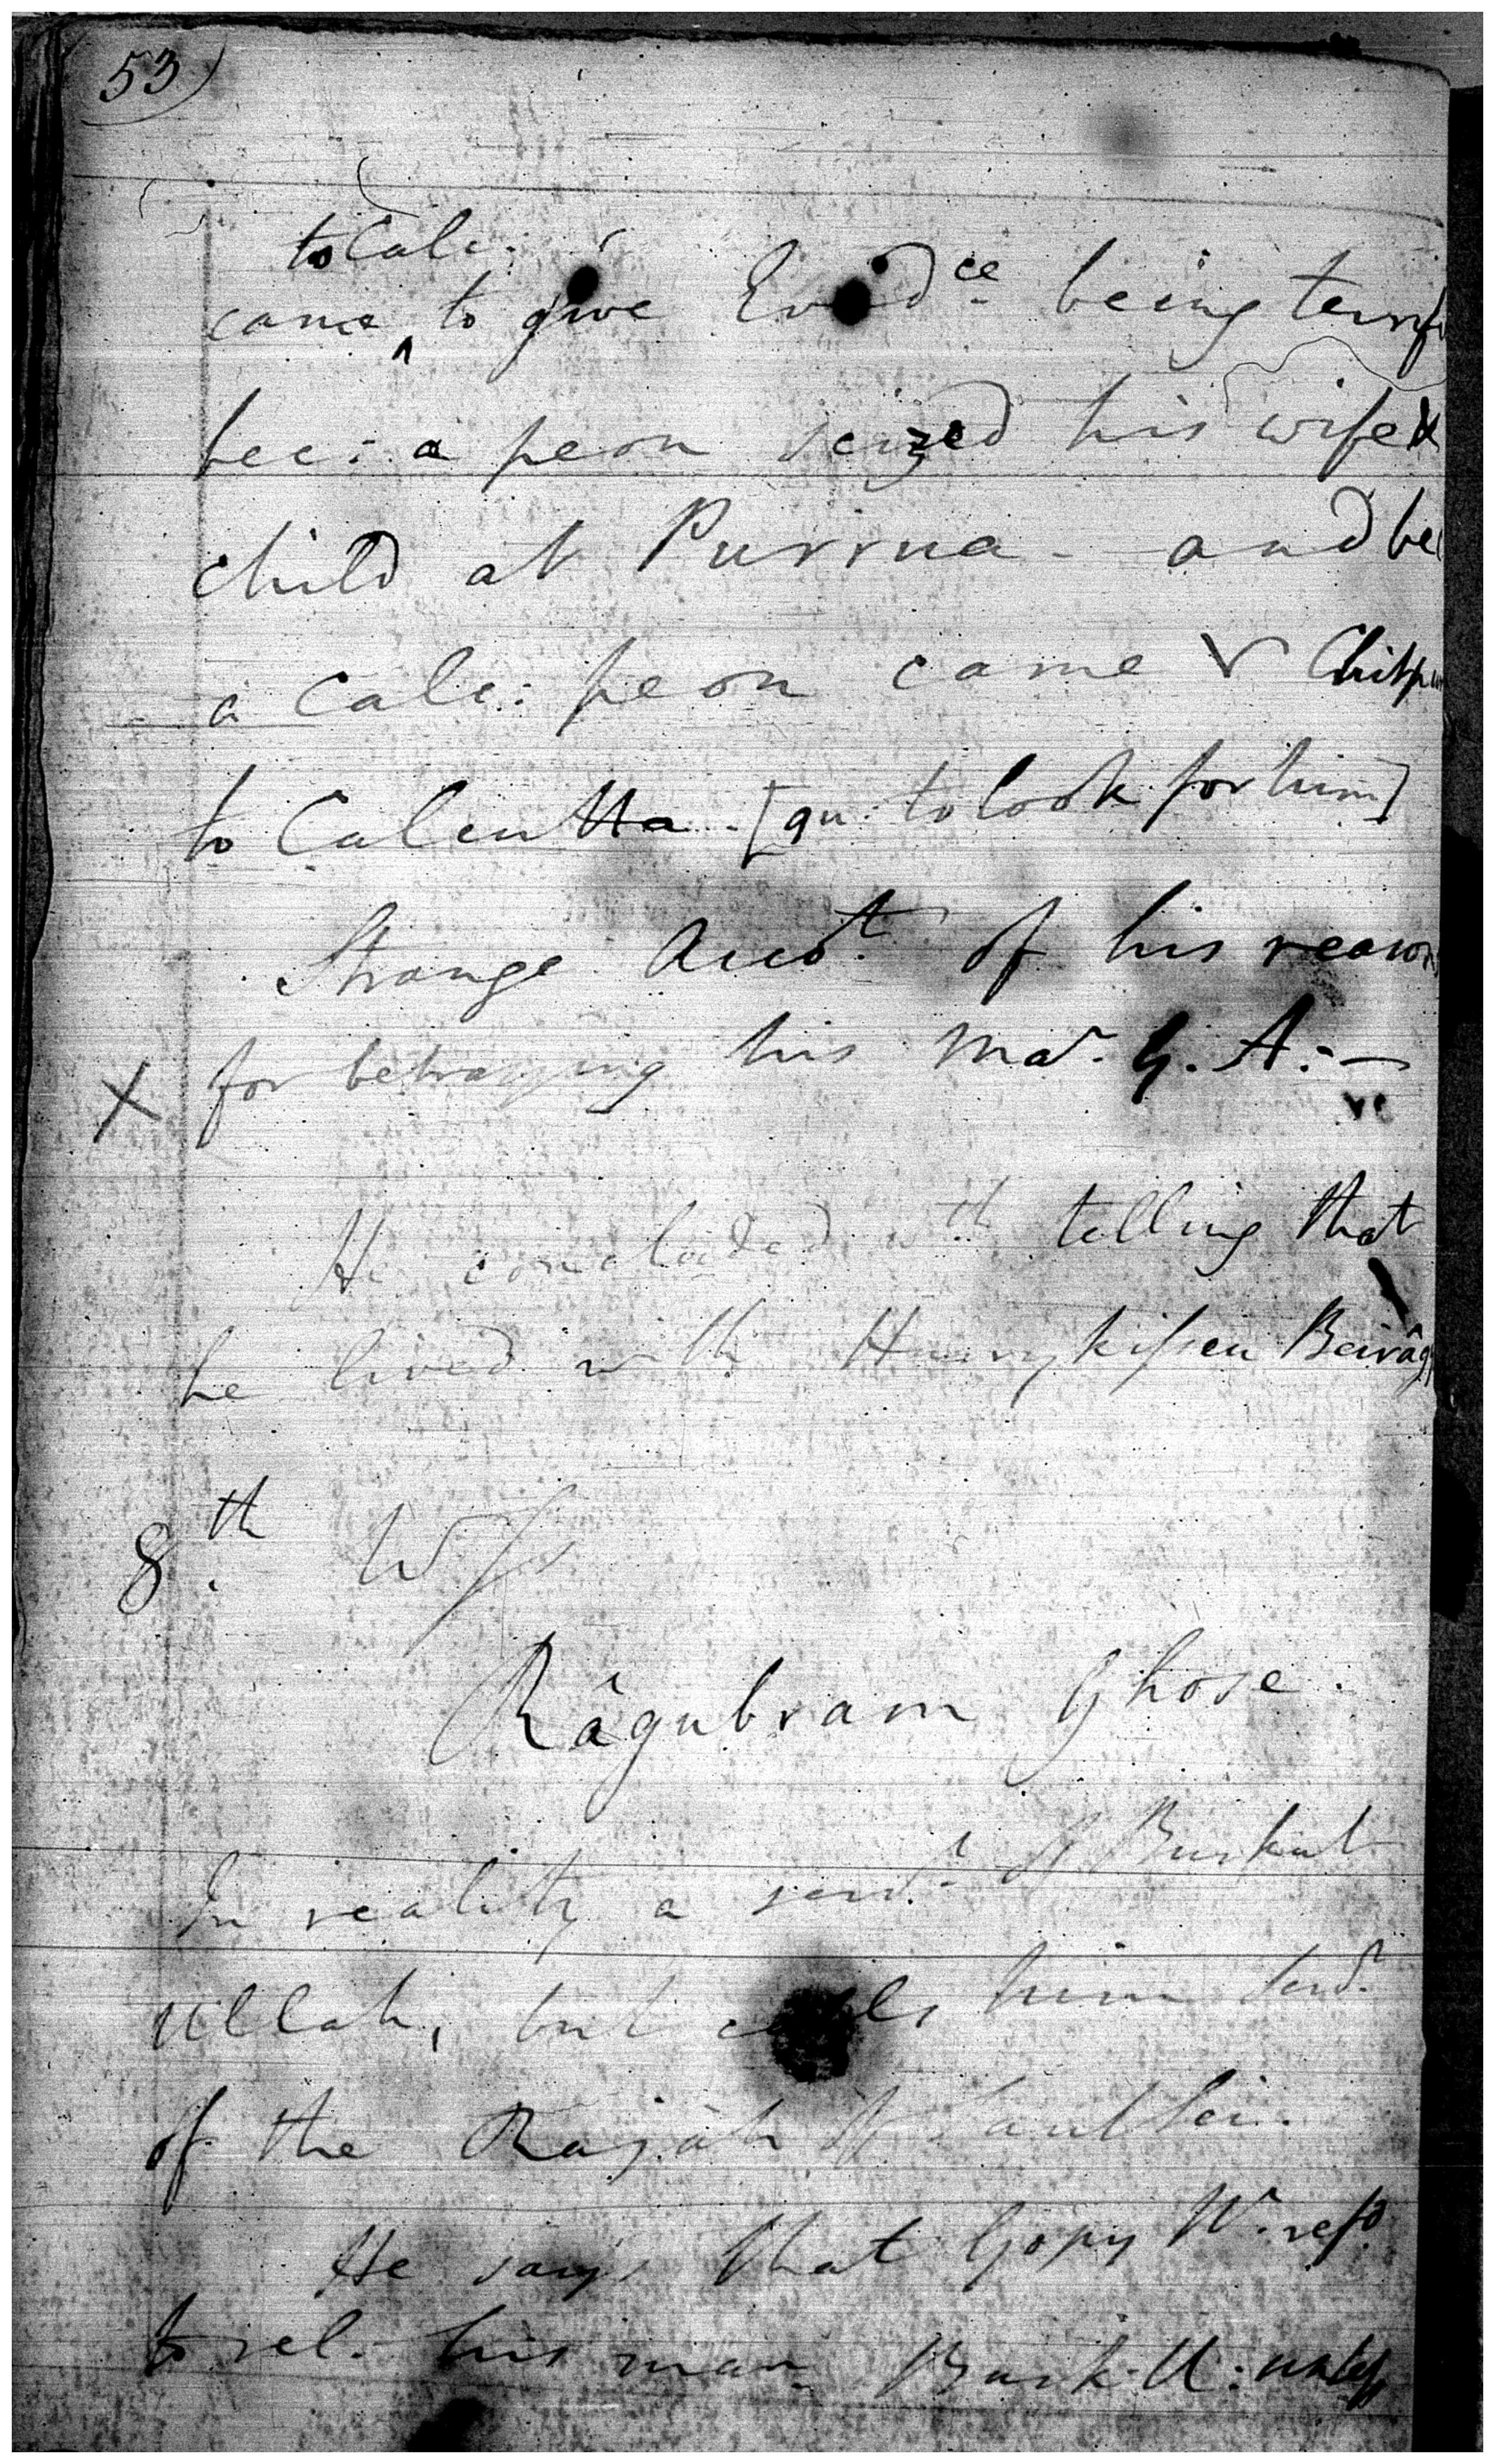 53)
to Calc:
came to give Evidce being terrifi
bec: a peon seized his wife &
child at Purrua - and bec
a Calc: peon came Chitpur
to Calcutta [qu: to look for him]
Strange Acco.t of his reasons
X for betraying his Mar. G. A: —
He concluded with telling that
he lived with Hurrykissen Beirâg
8th. W
Râgubram Ghose.
In reality a serv.t of Burkut
Ullah, but calls him serv.t
of the Rajah
He says that Gopy N. ref.d
to rel. his man Burk. U: unless